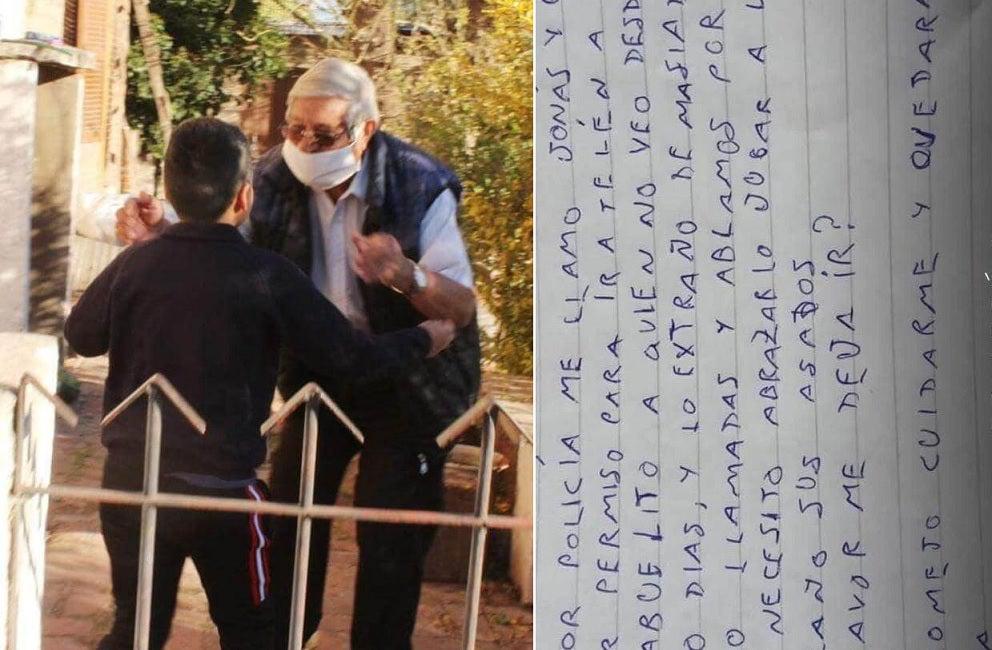 OR POLICÍA ME LLAMO JONÁS Y
R PERMISO PARA ÍR A TELÉN A
ABUELITO A QUIEN NO VEO DESD
O DIAS, Y LO EXTRAÑO DEMASIA
O LLAMADAS Y ABLAMOS POR
NECESITO ABRAZARLO JUGAR A L
AÑO SUS ASADOS
AVOR ME DEJA ÍR?
OMETO CUIDARME Y QUEDARA